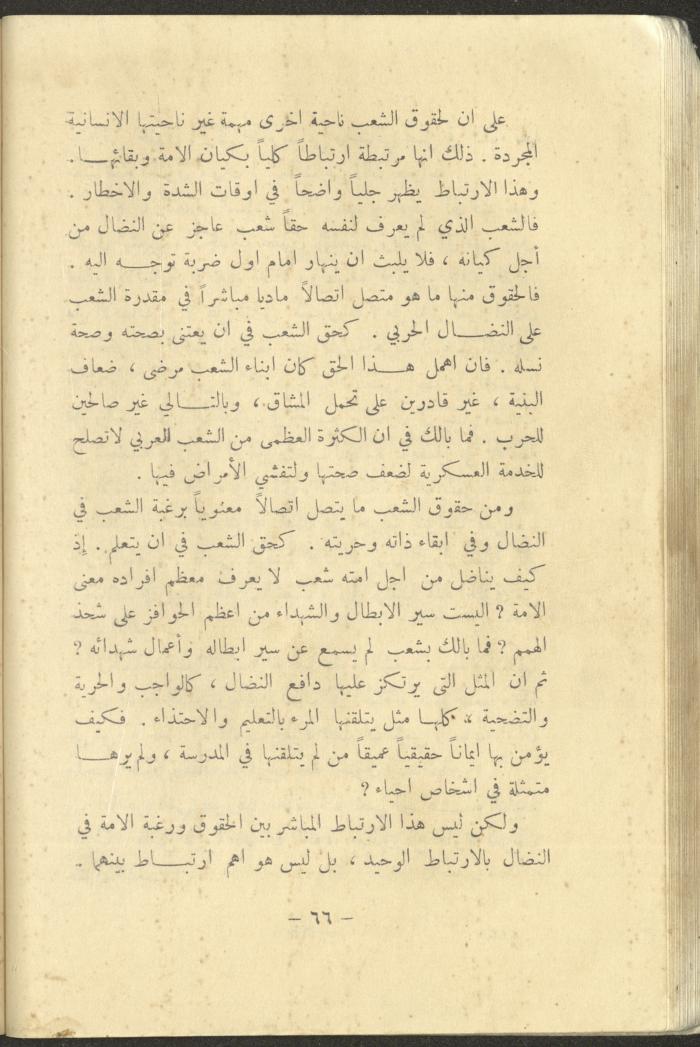 على ان لحقوق الشعب ناحية اخرى مهمة غير ناحيتها الانسانية
المجردة . ذلك انها مرتبطة ارتباطاً كلياً بكيان الامة وبقائهـا .
وهذا الارتباط يظهر جلياً واضحاً في اوقات الشدة والاخطار .
فالشعب الذي لم يعرف لنفسه حقاً شعب عاجز عن النضال من
أجل كيانه ، فلا يلبث ان ينهار امام اول ضربة توجـه اليه .
فالحقوق منها ما هو متصل اتصالاً ماديا مباشراً في مقدرة الشعب
على النضـال الحربي . كحق الشعب في ان يعتنى بصحته وصحة
نسله . فان اهمل هـذا الحق كان ابناء الشعب مرضى ، ضعاف
البنية ، غير قادرين على تحمل المشاق ، وبالتـالي غير صالحين
للحرب . فما بالك في ان الكثرة العظمى من الشعب العربي لاتصلح
للخدمة العسكرية لضعف صحتها ولتفشي الأمراض فيها .
ومن حقوق الشعب ما يتصل اتصالاً معنوياً برغبة الشعب في
النضال وفي ابقاء ذاته وحريته . كحق الشعب في ان يتعلم . إذ
كيف يناضل من اجل امته شعب لا يعرف معظم افراده معنى
الامة ؟ اليست سير الابطال والشهداء من اعظم الحوافز على شحذ
الهمم ؟ فما بالك بشعب لم يسمع عن سير ابطاله وأعمال شهدائه ؟
ثم ان المثل التي يرتكز عليها دافع النضال ، كالواجب والحرية
والتضحية ، كلهـا مثل يتلقنها المرء بالتعليم والاحتذاء . فكيف
يؤمن بها ايماناً حقيقياً عميقاً من لم يتلقنها في المدرسة ، ولم يرهـا
متمثلة في اشخاص احياء ؟
ولكن ليس هذا الارتباط المباشر بين الحقوق ورغبة الامة في
النضال بالارتباط الوحيد ، بل ليس هو اهم ارتبـاط بينهما .
– ٦٦ –